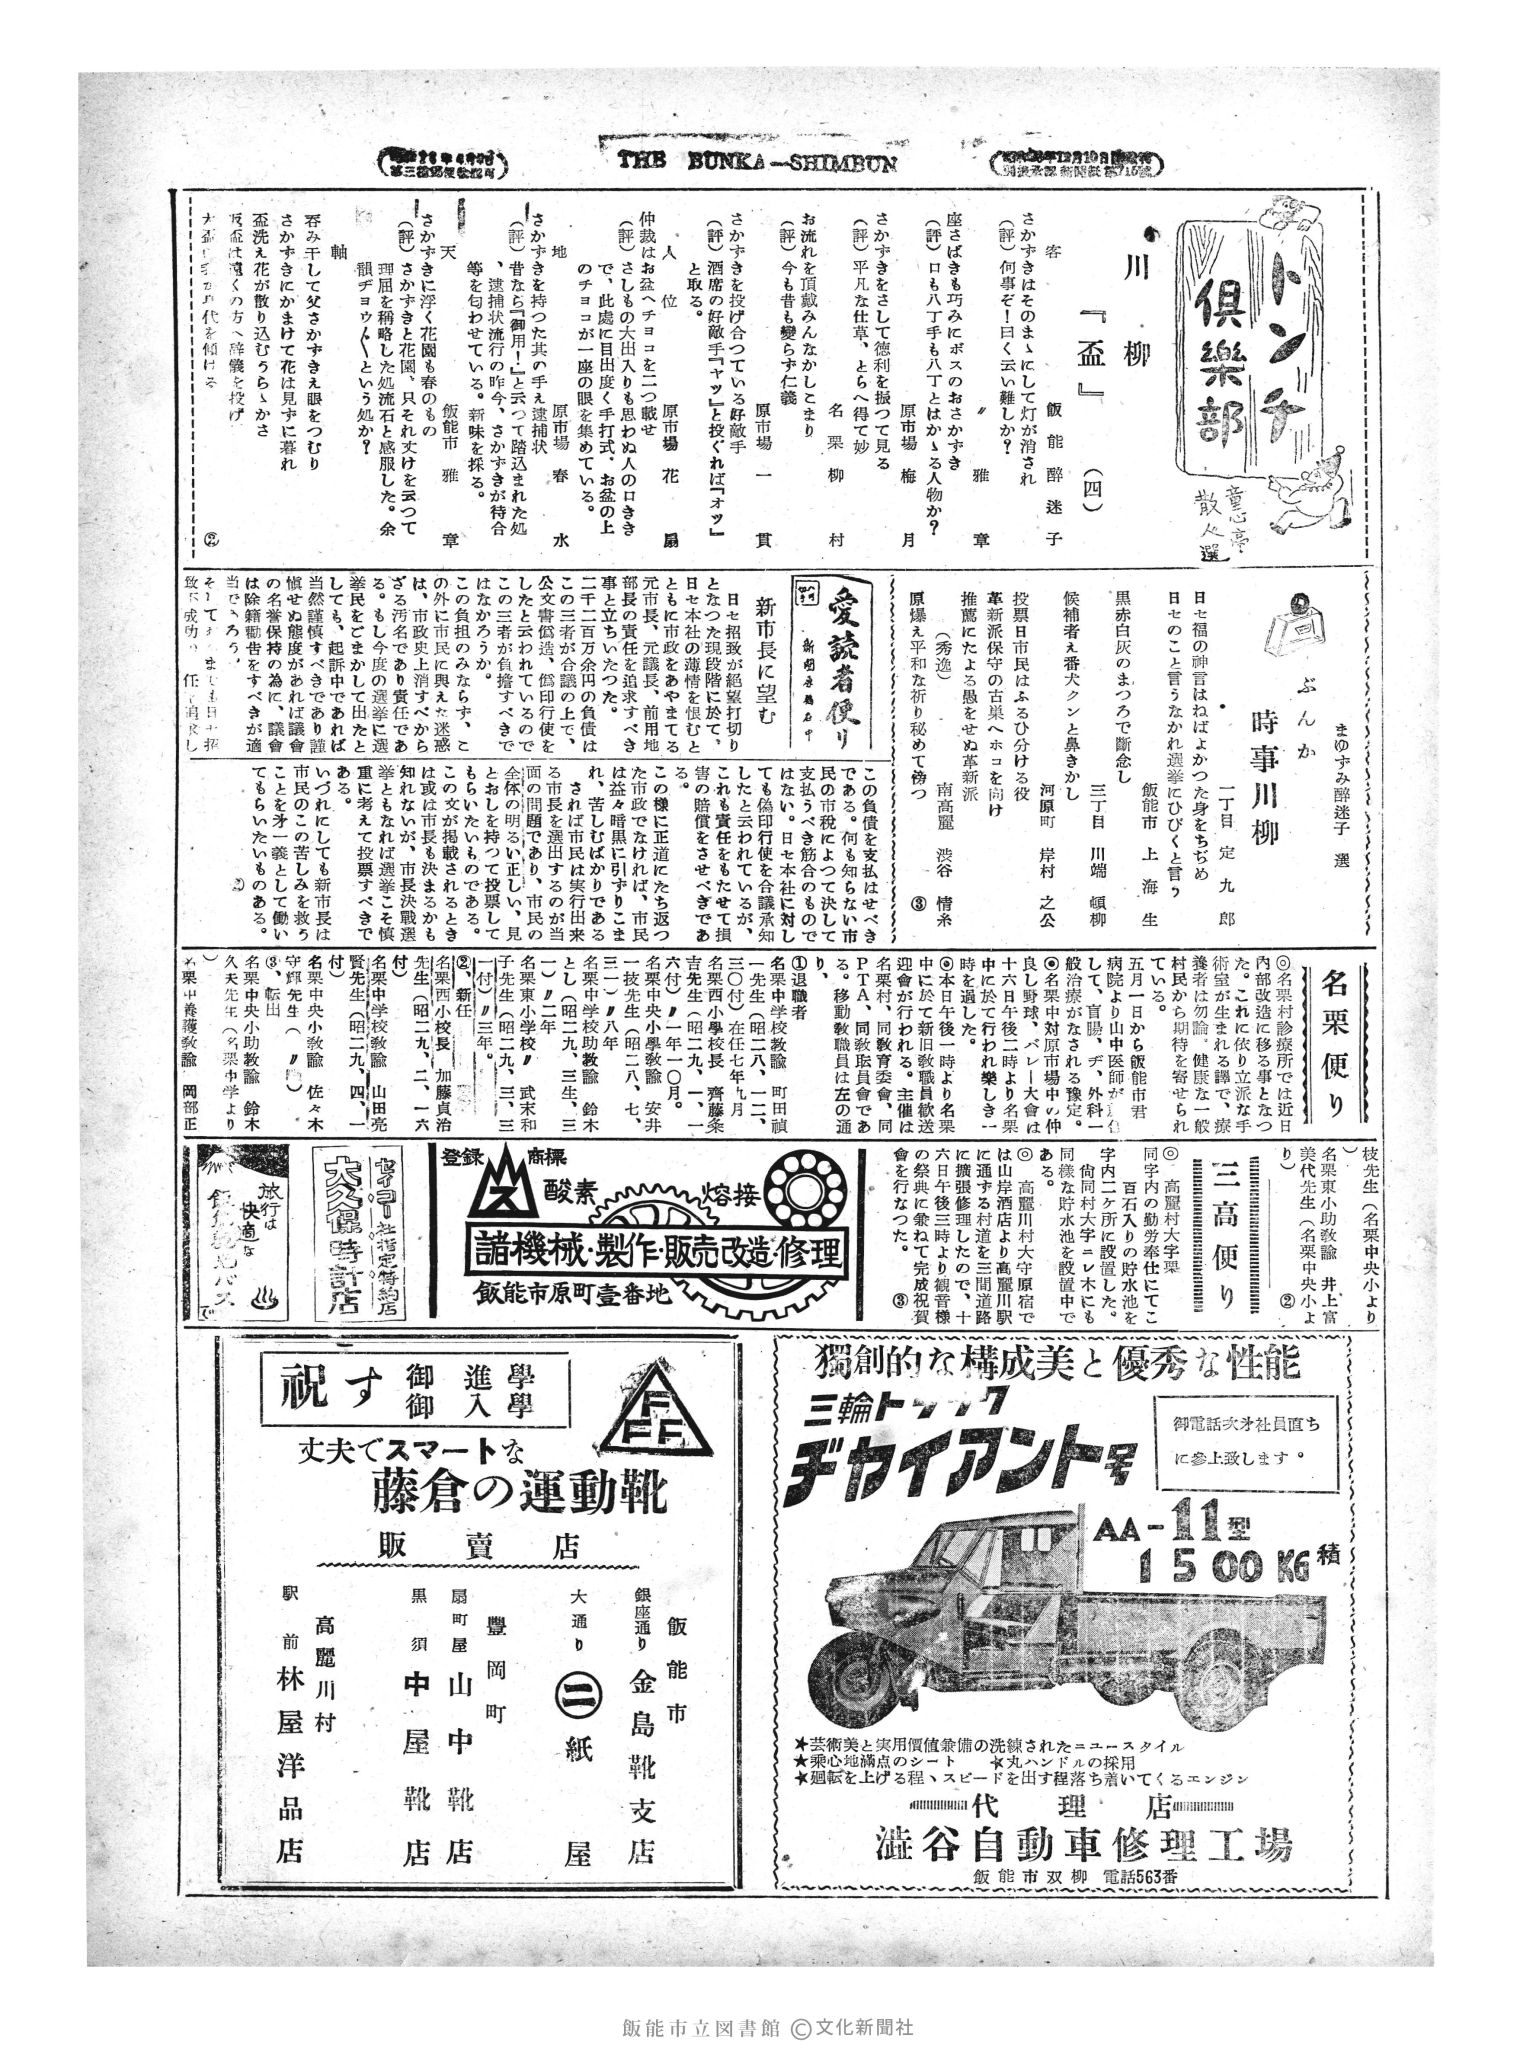 THE BUNKA―SHIMBUN
トンチ
倶樂部
童心亭
散人選
川柳
『盃』(四)
客 飯能 醉迷子
さかずきはそのまゝにして灯が消され
(評)何事ぞ!曰く云い難しか?
〃 雅章
座さばきも巧みにボスのおさかずき
(評)口も八丁手も八丁とはかゝる人物か?
原市場 梅月
さかずきをさして徳利を振つて見る
(評)平凡な仕草、とらへ得て妙
名栗 柳村
お流れを頂戴みんなかしこまり
(評)今も昔も變らず仁義
原市場 一貫
さかずきを投げ合つている好敵手
(評)酒席の好敵手『ヤッ』と投ぐれば『オッ』
と取る。
人位 原市場 花扇
仲裁はお盆へチョコを二つ載せ
(評)さしもの大出入りも思わぬ人の口きき
で、此處に目出度く手打式、お盆の上
のチョコが一座の眼を集めている。
地 原市場 春水
さかずきを持つた其の手え逮捕状
(評)昔なら『御用!』と云つて踏込まれた処
、逮捕状流行の昨今、さかずきが待合
等を匂わせている。新味を採る。
天 飯能市 雅章
さかずきに浮く花園も春のもの
(評)さかずきと花園、只それ丈けを云つて
理屈を稱略した処流石と感服した。余
韻ヂョウ〱という処か?
軸
呑み干して父さかずきえ眼をつむり
さかずきにかまけて花は見ずに暮れ
盃洗え花が散り込むうらゝかさ
返盃は遠くの方へ辞儀を投げ
ぶんか
時事川柳
まゆずみ醉迷子 選
一丁目 定九郎
日セ福の神言はねばよかつた身をちぢめ
日セのこと言うなかれ選挙にひびくと言う
飯能市 上海生
黒赤白灰のまつろで斷念し
三丁目 川端 頓柳
候補者え番犬クンと鼻きかし
河原町 岸村 之公
投票日市民はふるひ分ける役
革新派保守の古巣へホコを向け
推薦にたよる愚をせぬ革新派
(秀逸) 南高麗 渋谷 情糸
原爆え平和な祈り秘めて傍つ
③
愛読者便り
新市長に望む
日セ招致が絶望打切り
となつた現段階に於て、
日セ本社の薄情を恨むと
ともに市政をあやまてる
元市長、元議長、前用地
部長の責任を追求すべき
事と立ちいたつた。
二千二百万余円の負債は
この三者が合議の上で、
公文書僞造、僞印行使を
したと云われているので
この三者が負擔すべきで
はなかろうか。
この負担のみならず、こ
の外に市民に與えた迷惑
は、市政史上消すべから
ざる汚名であり責任であ
る。もし今度の選挙に選
挙民をごまかして出たと
しても、起訴中であれば
当然謹慎すべきであり謹
慎せぬ態度があれば議會
の名誉保持の為に、議會
は除籍勧告をすべきが適
当であろう。
この負債を支払はせべき
である。何も知らない市
民の市税によつて決して
支払うべき筋合のもので
はない。日セ本社に対し
ても偽印行使を合議承知
したと云われているが、
これも責任をもたせて損
害の賠償をさせべぎであ
る。
この様に正道にたち返つ
た市政でなければ、市民
は益々暗黒に引ずりこま
れ、苦しむばかりである
されば市民は実行出来
る市長を選出するのが当
面の問題であり、市民の
全体の明るい正しい、見
とおしを持つて投票して
もらいたいものである。
この文が掲載されるとき
は或は市長も決まるかも
知れないが、市長決戰選
挙ともなれば選挙こそ慎
重に考えて投票すべきで
ある。
いづれにしても新市長は
市民のこの苦しみを救う
ことを才一義として働い
てもらいたいものある。
名栗便り
◎名栗村診療所では近日
内部改造に移る事となつ
た。これに依り立派な手
術室が生まれる譯で、療
養者は勿論。健康な一般
村民から期待を寄せられ
ている。
五月一日から飯能市君
病院より山中医師が
して、盲腸、ヂ、外科一
般治療がなされる豫定。
◉名栗中対原市場中の仲
良し野球、バレー大會は
十六日午後二時より名栗
中に於て行われ樂しき一
時を過した。
◉本日午後一時より名栗
中に於て新旧敎職員歓送
迎會が行われる。主催は
名栗村、同敎育委會、同
PTA、同敎聀員會であ
る。移動敎職員は左の通
り、
①退職者
名栗中学校敎諭 町田禎
一先生(昭二八、一二、
三〇付)在任七年九月
名栗西小學校長 齊藤粂
吉先生(昭二九、一、一
六付)〃一年一〇月。
名栗中央小學敎諭 安井
一技先生(昭二八、七、
三一)〃八年
名栗中学校助敎諭 鈴木
とし(昭二九、三生、三
一)〃二年
名栗東小学校〃 武末和
子先生(昭二九、三、三
一付)〃三年。
② 新任
名栗西小校長 加藤貞治
先生(昭二九、二、一六
付)
名栗中学校敎諭 山田亮
賢先生(昭二九、四、一
付)
名栗中央小敎諭 佐々木
守輝先生(〃 )
③、転出
名栗中央小助敎諭 鈴木
久夫先生(名栗中学より
)
名栗中養護敎諭 岡部正
枝先生(名栗中央小より
)
名栗東小助敎諭 井上富
美代先生(名栗中央小よ
り)
②
三高便り
◎ 高麗村大字栗
同字内の勤労奉仕にてこ
百石入りの貯水池を
字内二ケ所に設置した。
尙同村大字ニレ木にも
同様な貯水池を設置中で
ある。
◎ 高麗川村大守原宿で
は山岸酒店より高麗川駅
に通ずる村道を三間道路
に擴張修理したので、十
六日午後三時より観音様
の祭典に兼ねて完成祝賀
會を行なつた。
③
登録商標
酸素 熔接
諸機械・製作・販売改造・修理
飯能市原町壹番地
セイコー社指定特約店
大久保時計店
旅行は
快適な
で
祝す 御進學
御入學
FFF
丈夫でスマートな
藤倉の運動靴
販賣店
飯能市
銀座通り 金島靴支店
大通り ㊁紙屋
豐岡町
扇町屋 山中靴店
黒須 中屋靴店
高麗川村
駅前 林屋洋品店
獨創的な構成美と優秀な性能
三輪トラック
ヂャイアント号
御電話次才社員直ち
に参上致します。
AA-11型
1500KG積
★芸術美と実用價値兼備の洗練されたニユースタイル
★乘心地滿点のシート ★丸ハンドルの採用
★廻転を上げる程、スピードを出す程落ち着いてくるエンジン
代理店
澁谷自動車修理工場
飯能市双柳 電話563番
飯能市立図書館 ©文化新聞社